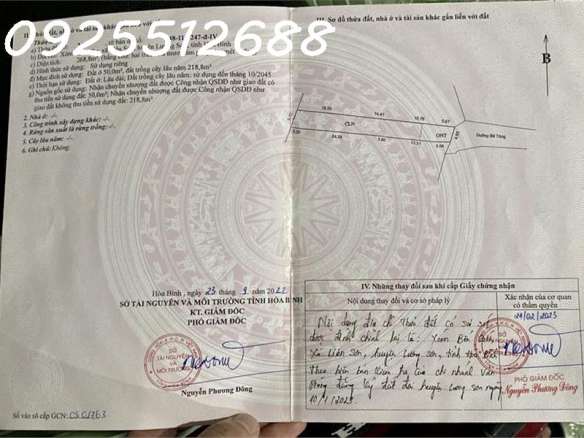 0925512688
II.
a) Thửa đất số:
b) Địa chỉ: Xóm
c) Diện tích: 268,8m²
d) Hình thức sử dụng: Sử dụng riêng
đ) Mục đích sử dụng: Đất ở 50,0m²; đất trồng cây lâu năm 218,8m²
e) Thời hạn sử dụng: Đất ở: Lâu dài; Đất trồng cây lâu năm: sử dụng đến tháng 10/2045
g) Nguồn gốc sử dụng: Nhận chuyển nhượng đất được Công nhận QSDĐ như giao đất có
thu tiền sử dụng đất: 50,0m²; Nhận chuyển nhượng đất được Công nhận QSDĐ như
giao đất không thu tiền sử dụng đất: 218,8m²
2. Nhà ở: -/-.
3. Công trình xây dựng khác: -/-.
4. Rừng sản xuất là rừng trồng: -/-.
5. Cây lâu năm: -/-.
6. Ghi chú: Không.
Hòa Bình, ngày 23 tháng 9 năm 2022
SỞ TÀI NGUYÊN VÀ MÔI TRƯỜNG TỈNH HÒA BÌNH
KT. GIÁM ĐỐC
PHÓ GIÁM ĐỐC
SỞ
TÀI NGUYÊN
VÀ
MÔI TRƯỜNG
Nguyễn Phương Đông
Số vào sổ cấp GCN:
III. Sơ đồ thửa đất, nhà ở và tài sản khác gắn liền với đất
B
CLN
ONT
Đường Bê Tông
IV. Những thay đổi sau khi cấp Giấy chứng nhận
Nội dung thay đổi và cơ sở pháp lý
Xác nhận của cơ quan
có thẩm quyền
24/02/2023
Nội dung địa chỉ Thửa đất có sai sót
được đính chính lại là: Xóm
Xã Liên Sơn, huyện Lương Sơn, tỉnh Hòa Bình
Theo biên bản kiểm tra của chi nhánh Văn
Phòng đăng ký đất đai huyện Lương Sơn ngày
10/1/2023.
PHÓ GIÁM ĐỐC
Nguyễn Phương Đông